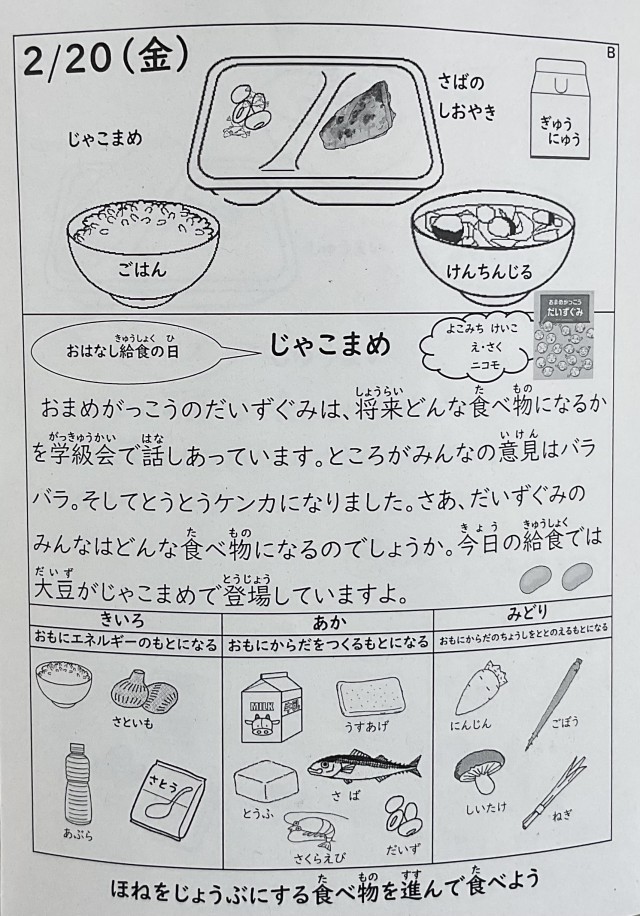 2/20(金)
B
じゃこまめ
さばの
しおやき
ぎゅう
にゅう
ごはん
けんちんじる
おはなし給食の日
きゅうしょく ひ
じゃこまめ
よこみち けいこ
え・さく
ニコモ
おまめがっこう
だいずぐみ
しょうらい た もの
おまめがっこうのだいずぐみは、将来どんな食べ物になるか
がっきゅうかい はな いけん
を学級会で話しあっています。ところがみんなの意見はバラ
バラ。そしてとうとうケンカになりました。さあ、だいずぐみの
た もの きょう きゅうしょく
みんなはどんな食べ物になるのでしょうか。今日の給食では
だいず とうじょう
大豆がじゃこまめで登場していますよ。
きいろ
おもにエネルギーのもとになる
あか
おもにからだをつくるもとになる
みどり
おもにからだのちょうしをととのえるもとになる
さといも
あぶら
さとう
MILK
うすあげ
とうふ
さば
さくらえび
だいず
にんじん
ごぼう
しいたけ
ねぎ
た もの すす た
ほねをじょうぶにする食べ物を進んで食べよう